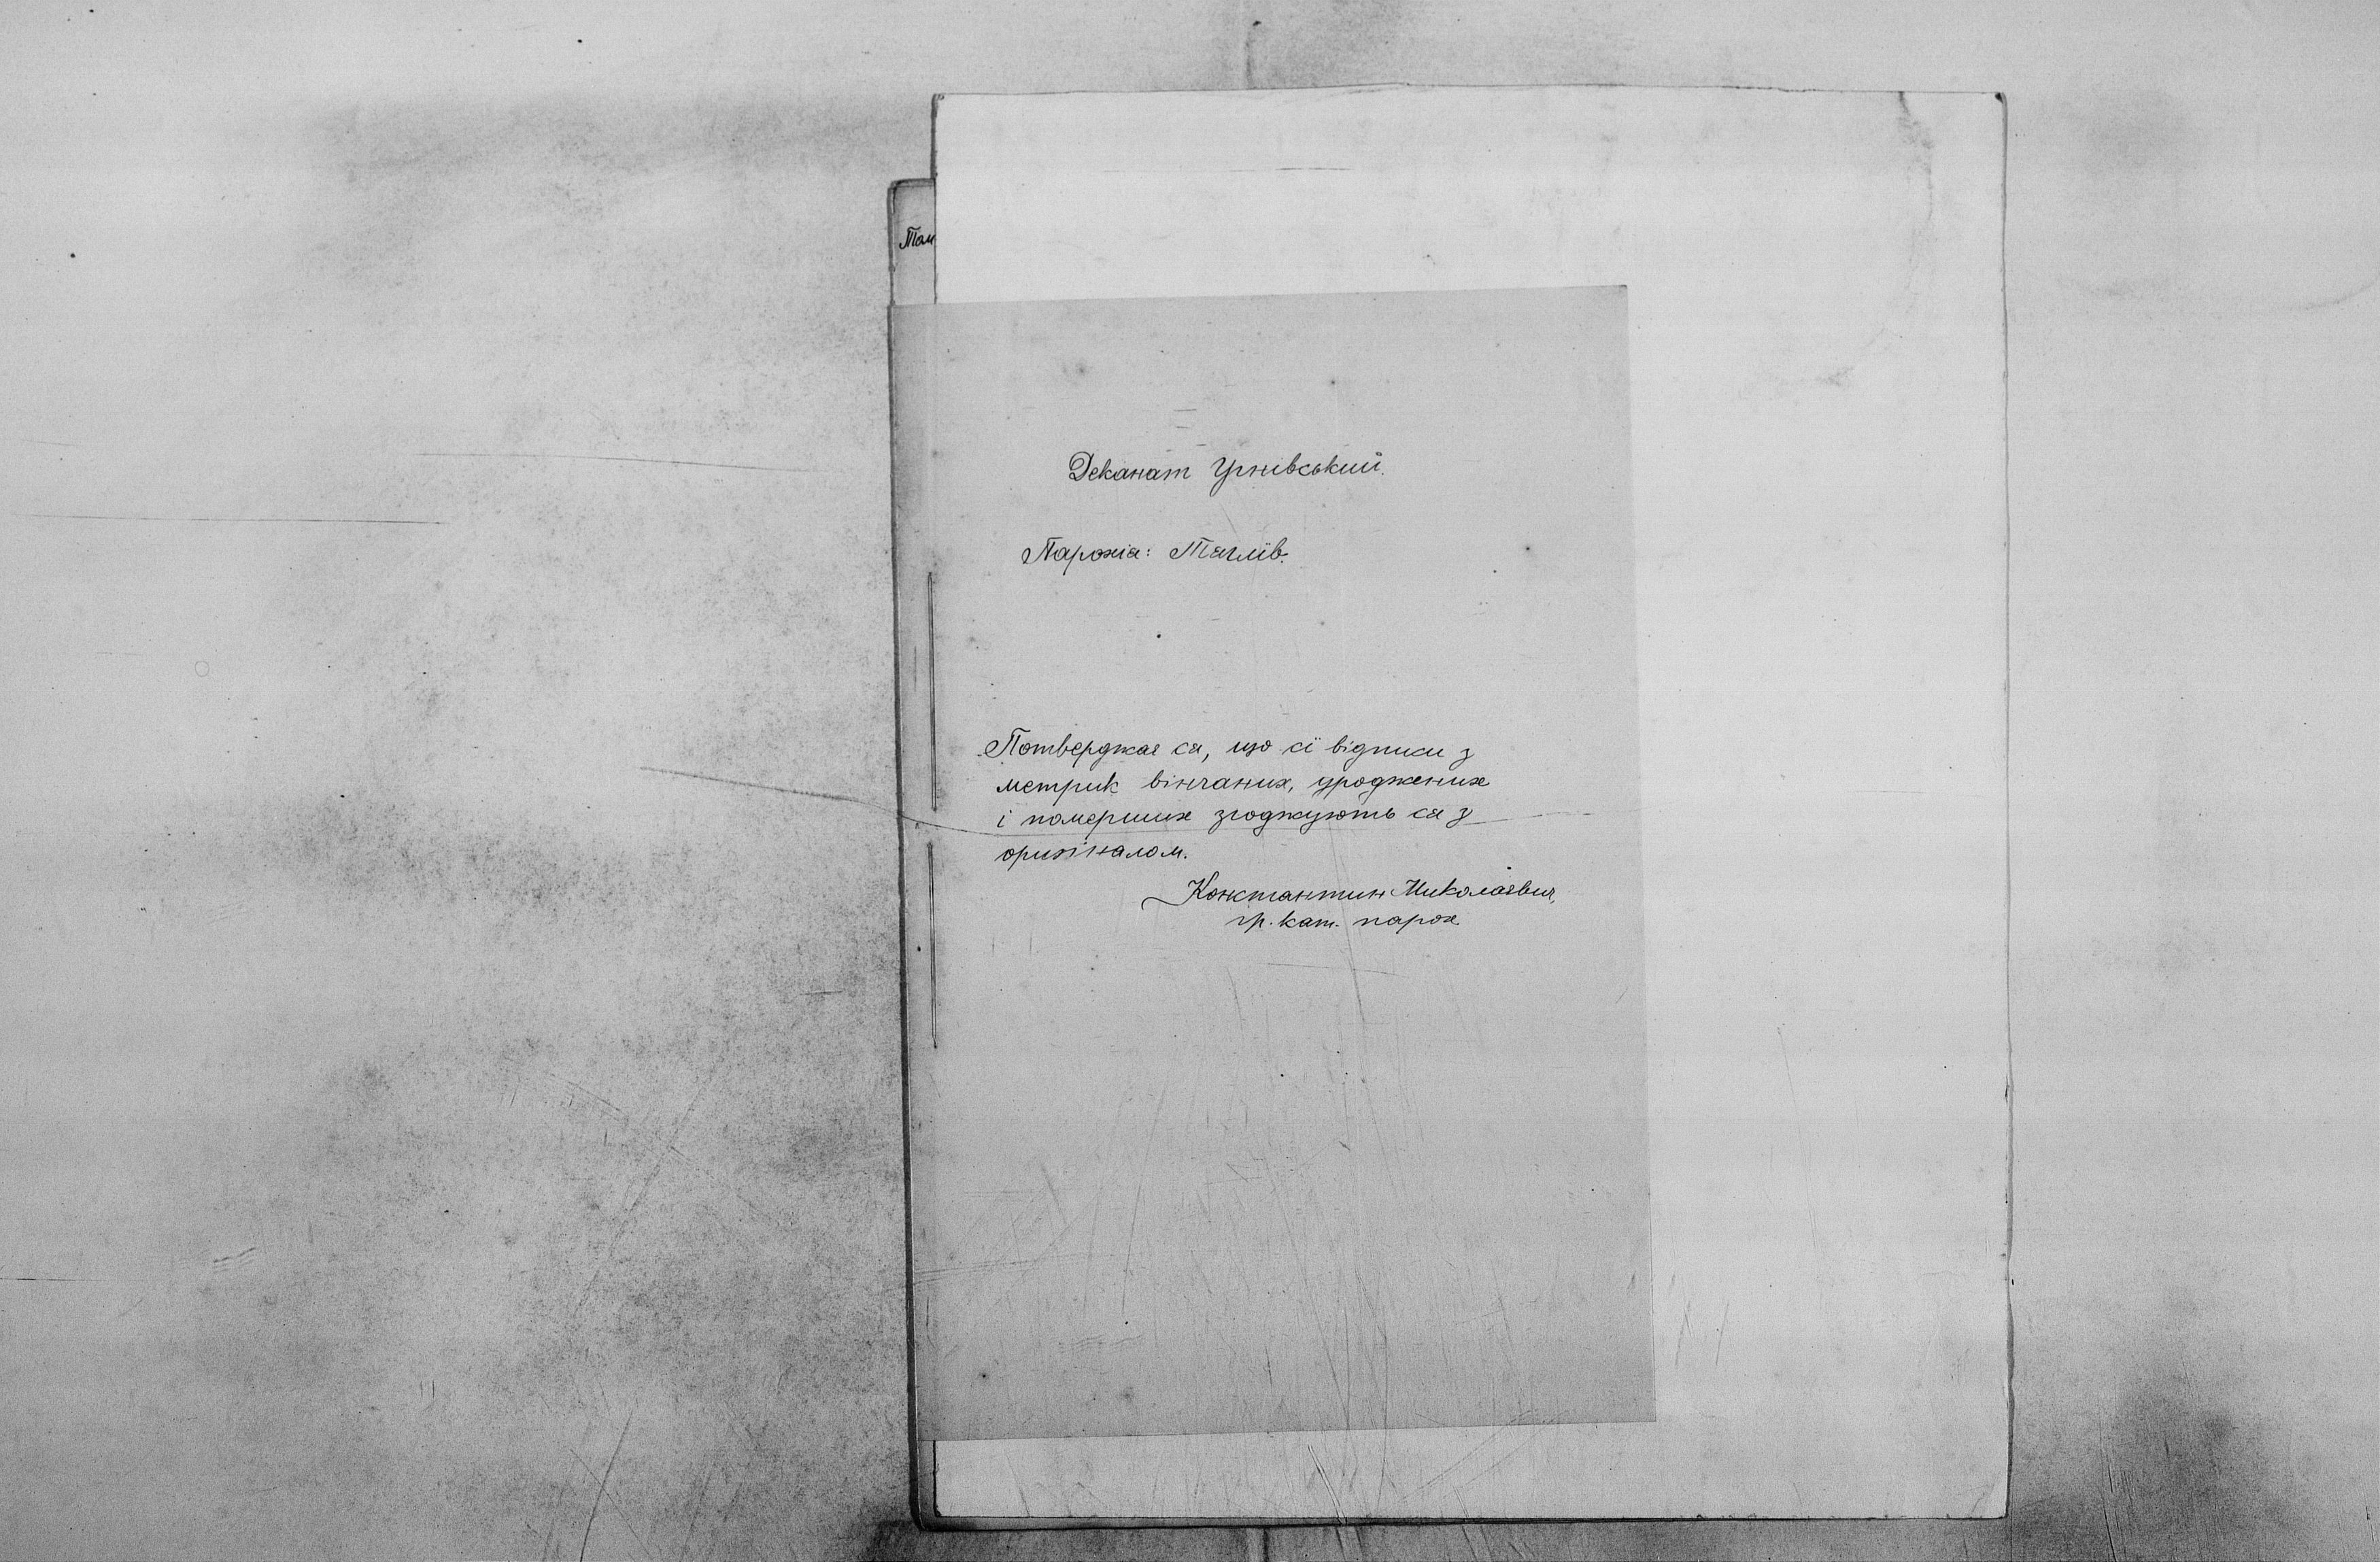 Том
Деканат Угнівський.
Парохія: Тяглів.
Потверджає ся, що сї відписи з
метрик вінчаних, уроджених
і померших згоджують ся з
оригіналом.
Константин Миколаєвич,
гр. кат. парох